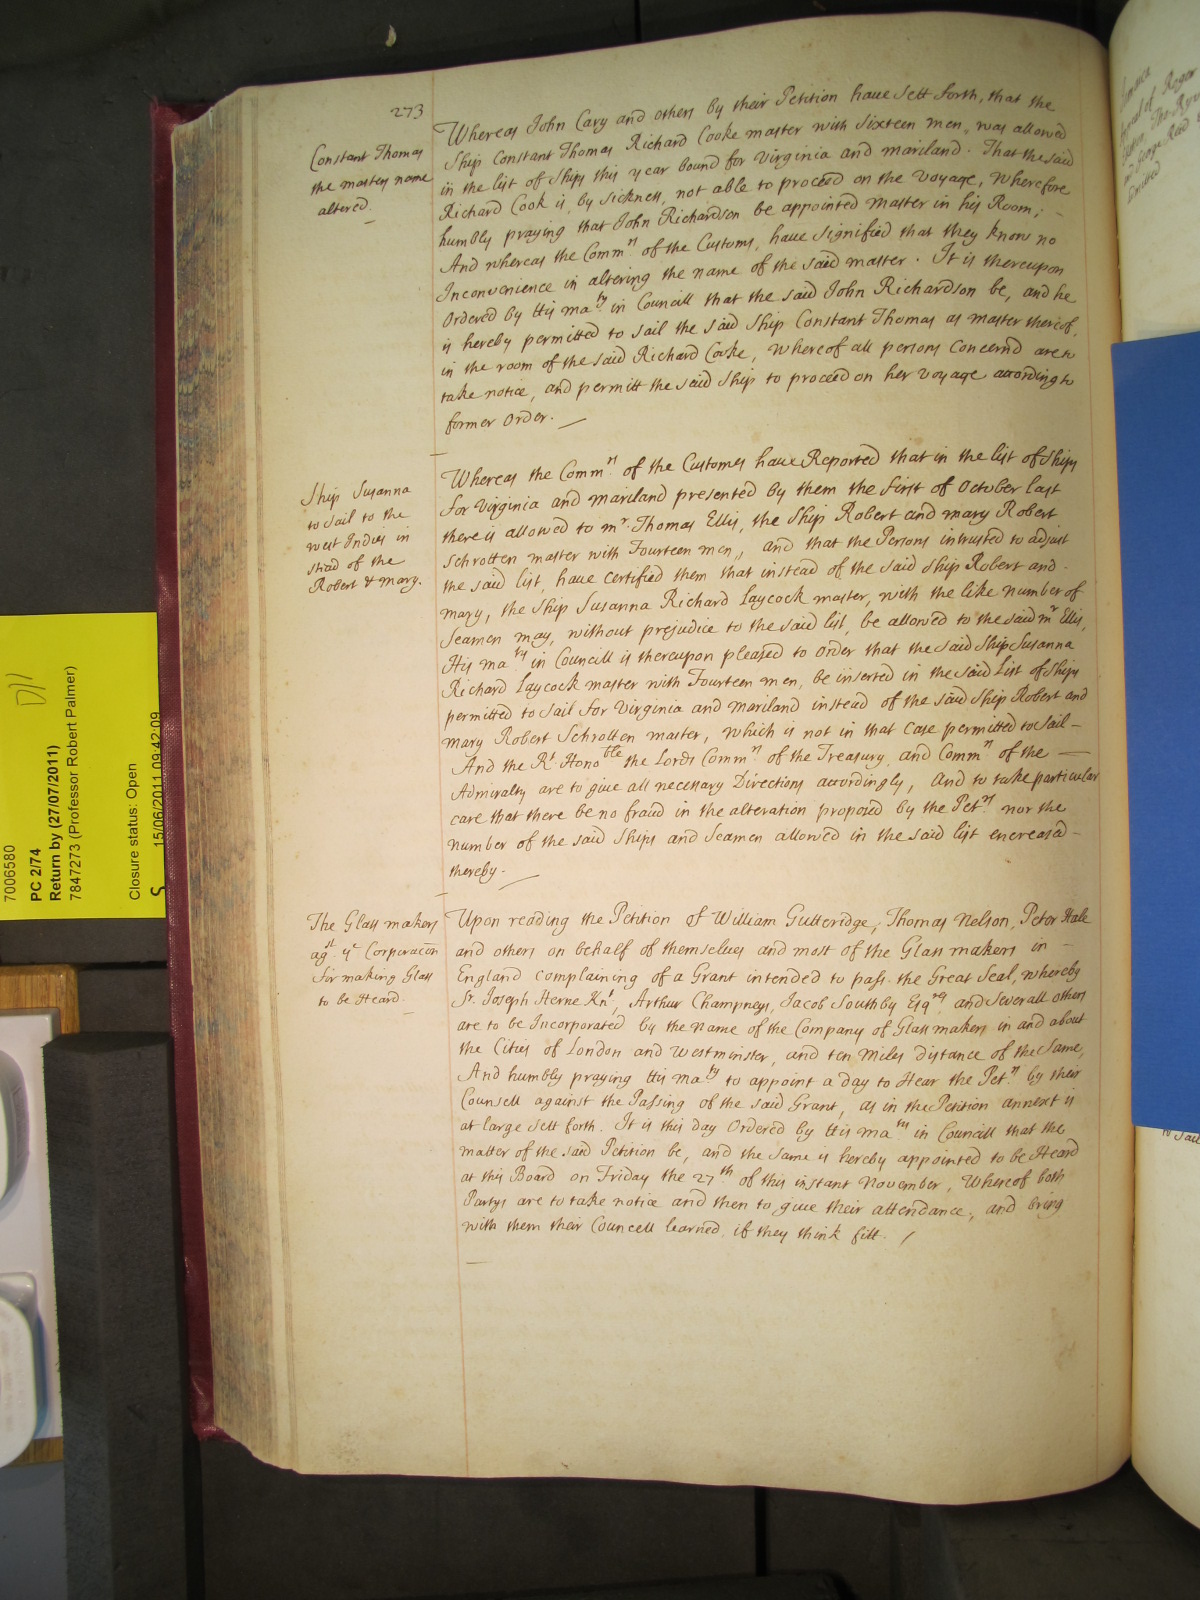 273
Constant Thomas
the masters name
altered.
Whereas John Cary and others by their Petition have sett forth, that the
Ship Constant Thomas Richard Cooke master with sixteen men, was allowed
in the list of Ships this year bound for Virginia and mariland. That the said
Richard Cook is, by sickness, not able to proceed on the Voyage, wherefore
humbly praying that John Richardson be appointed Master in his Room;
And whereas the Commrs of the Customs, have signified that they know no
Inconvenience in altering the name of the said master. It is thereupon
Ordered by His maty in Councill that the said John Richardson be, and he
is hereby permitted to sail the said Ship Constant Thomas as master thereof
in the room of the said Richard Cooke, Whereof all persons Concernd are to
take notice, and permitt the said ship to proceed on her voyage according to
former Order.
Ship Susanna
to sail to the
west Indies in
stead of the
Robert & mary.
Whereas the Commrs of the Customes have Reported that in the list of Ships
for Virginia and mariland presented by them the first of October last
there is allowed to mr. Thomas Ellis, the Ship Robert and mary Robert
Schrotten master with Fourteen men, and that the Persons intrusted to adjust
the said list, have certified them that instead of the said ship Robert and
mary, the ship Susanna Richard Laycock master, with the like number of
Seamen may, without prejudice to the said list, be allowed to the said mr Ellis,
His maty in Councill is thereupon pleased to Order that the said Ship Susanna
Richard Laycock master with Fourteen men, be inserted in the said List of Ships
permitted to sail for Virginia and Mariland instead of the said ship Robert and
mary Robert Schrotten master, which is not in that case permitted to Sail
And the Rt Honoble the Lords Commrs of the Treasury, and Commrs of the
Admiralty are to give all necessary Directions accordingly, and to take particular
care that there be no fraud in the alteration proposed by the Petrs nor the
number of the said Ships and Seamen allowed in the said list encreased
thereby.
The Glass makers
agst ye Corporacon
for making Glass
to be Heard
Upon reading the Petition of William Gutteridge, Thomas Nelson, Peter Hale
and others on behalf of themselves and most of the Glass makers in
England complaining of a Grant intended to pass the Great Seal, whereby
Sr. Joseph Herne Knt, Arthur Champneys, Jacob Southby Esqrs and severall others
are to be Incorporated by the name of the Company of Glass makers in and about
the Cities of London and Westminster, and ten Miles distance of the same,
And humbly praying His maty to appoint a day to Hear the Petrs by their
Counsell against the Passing of the said Grant, as in the Petition annext is
at large sett forth. It is this day Ordered by His maty in Councill that the
matter of the said Petition be, and the same is hereby appointed to be Heard
at this Board on Friday the 27th of this instant November, Whereof both
Partys are to take notice and then to give their attendance, and bring
with them their Councell learned if they think fitt.
7006580
PC 2/74
Return by (27/07/2011)
7847273 (Professor Robert Palmer)
Closure status: Open
15/06/2011 09:42:09
S
D11